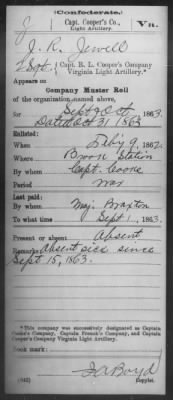 (Confederate.)
J Capt. Cooper's Co., Va.
Light Artillery.
J. R. Jewell
Sgt., Capt. R. L. Cooper's Company
Virginia Light Artillery.*
Appears on
Company Muster Roll
of the organization named above,
for Sept & Oct, 1863.
Dated Oct 31, 1863
Enlisted:
When Feby 9, 1862.
Where Station
By whom Capt. Cooke
Period war
Last paid:
By whom Maj. Braxton
To what time Sept 1, 1863.
Present or absent Absent
Remarks: Absent sick since
Sept 15, 1863.
*This company was successively designated as Captain
Cooke's Company, Captain French's Company, and Captain
Cooper's Company Virginia Light Artillery.
Book mark:
(642)
Boyd
Copyist.